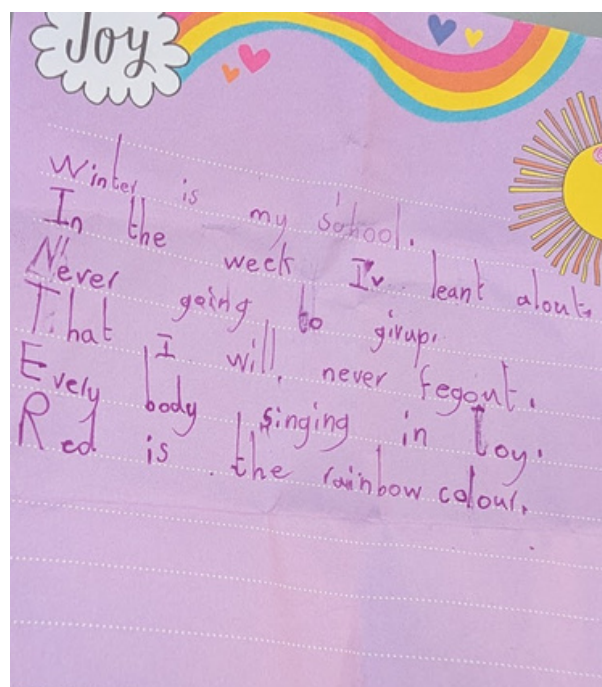 Joy
Winter is my school.
In the week I'v leant alout.
Never going to givup.
That I will never fegout.
Evely body singing in Joy.
Red is the rainbow colour.